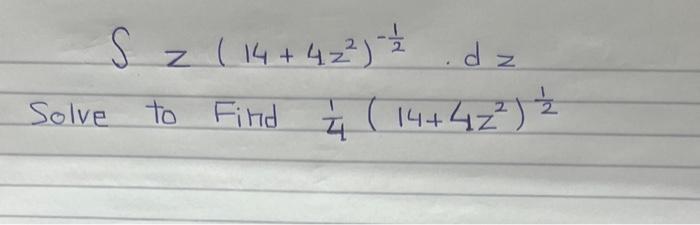 ∫ z (14 + 4z²)^{-1/2} . dz
Solve to Find 1/4 (14+4z²)^{1/2}